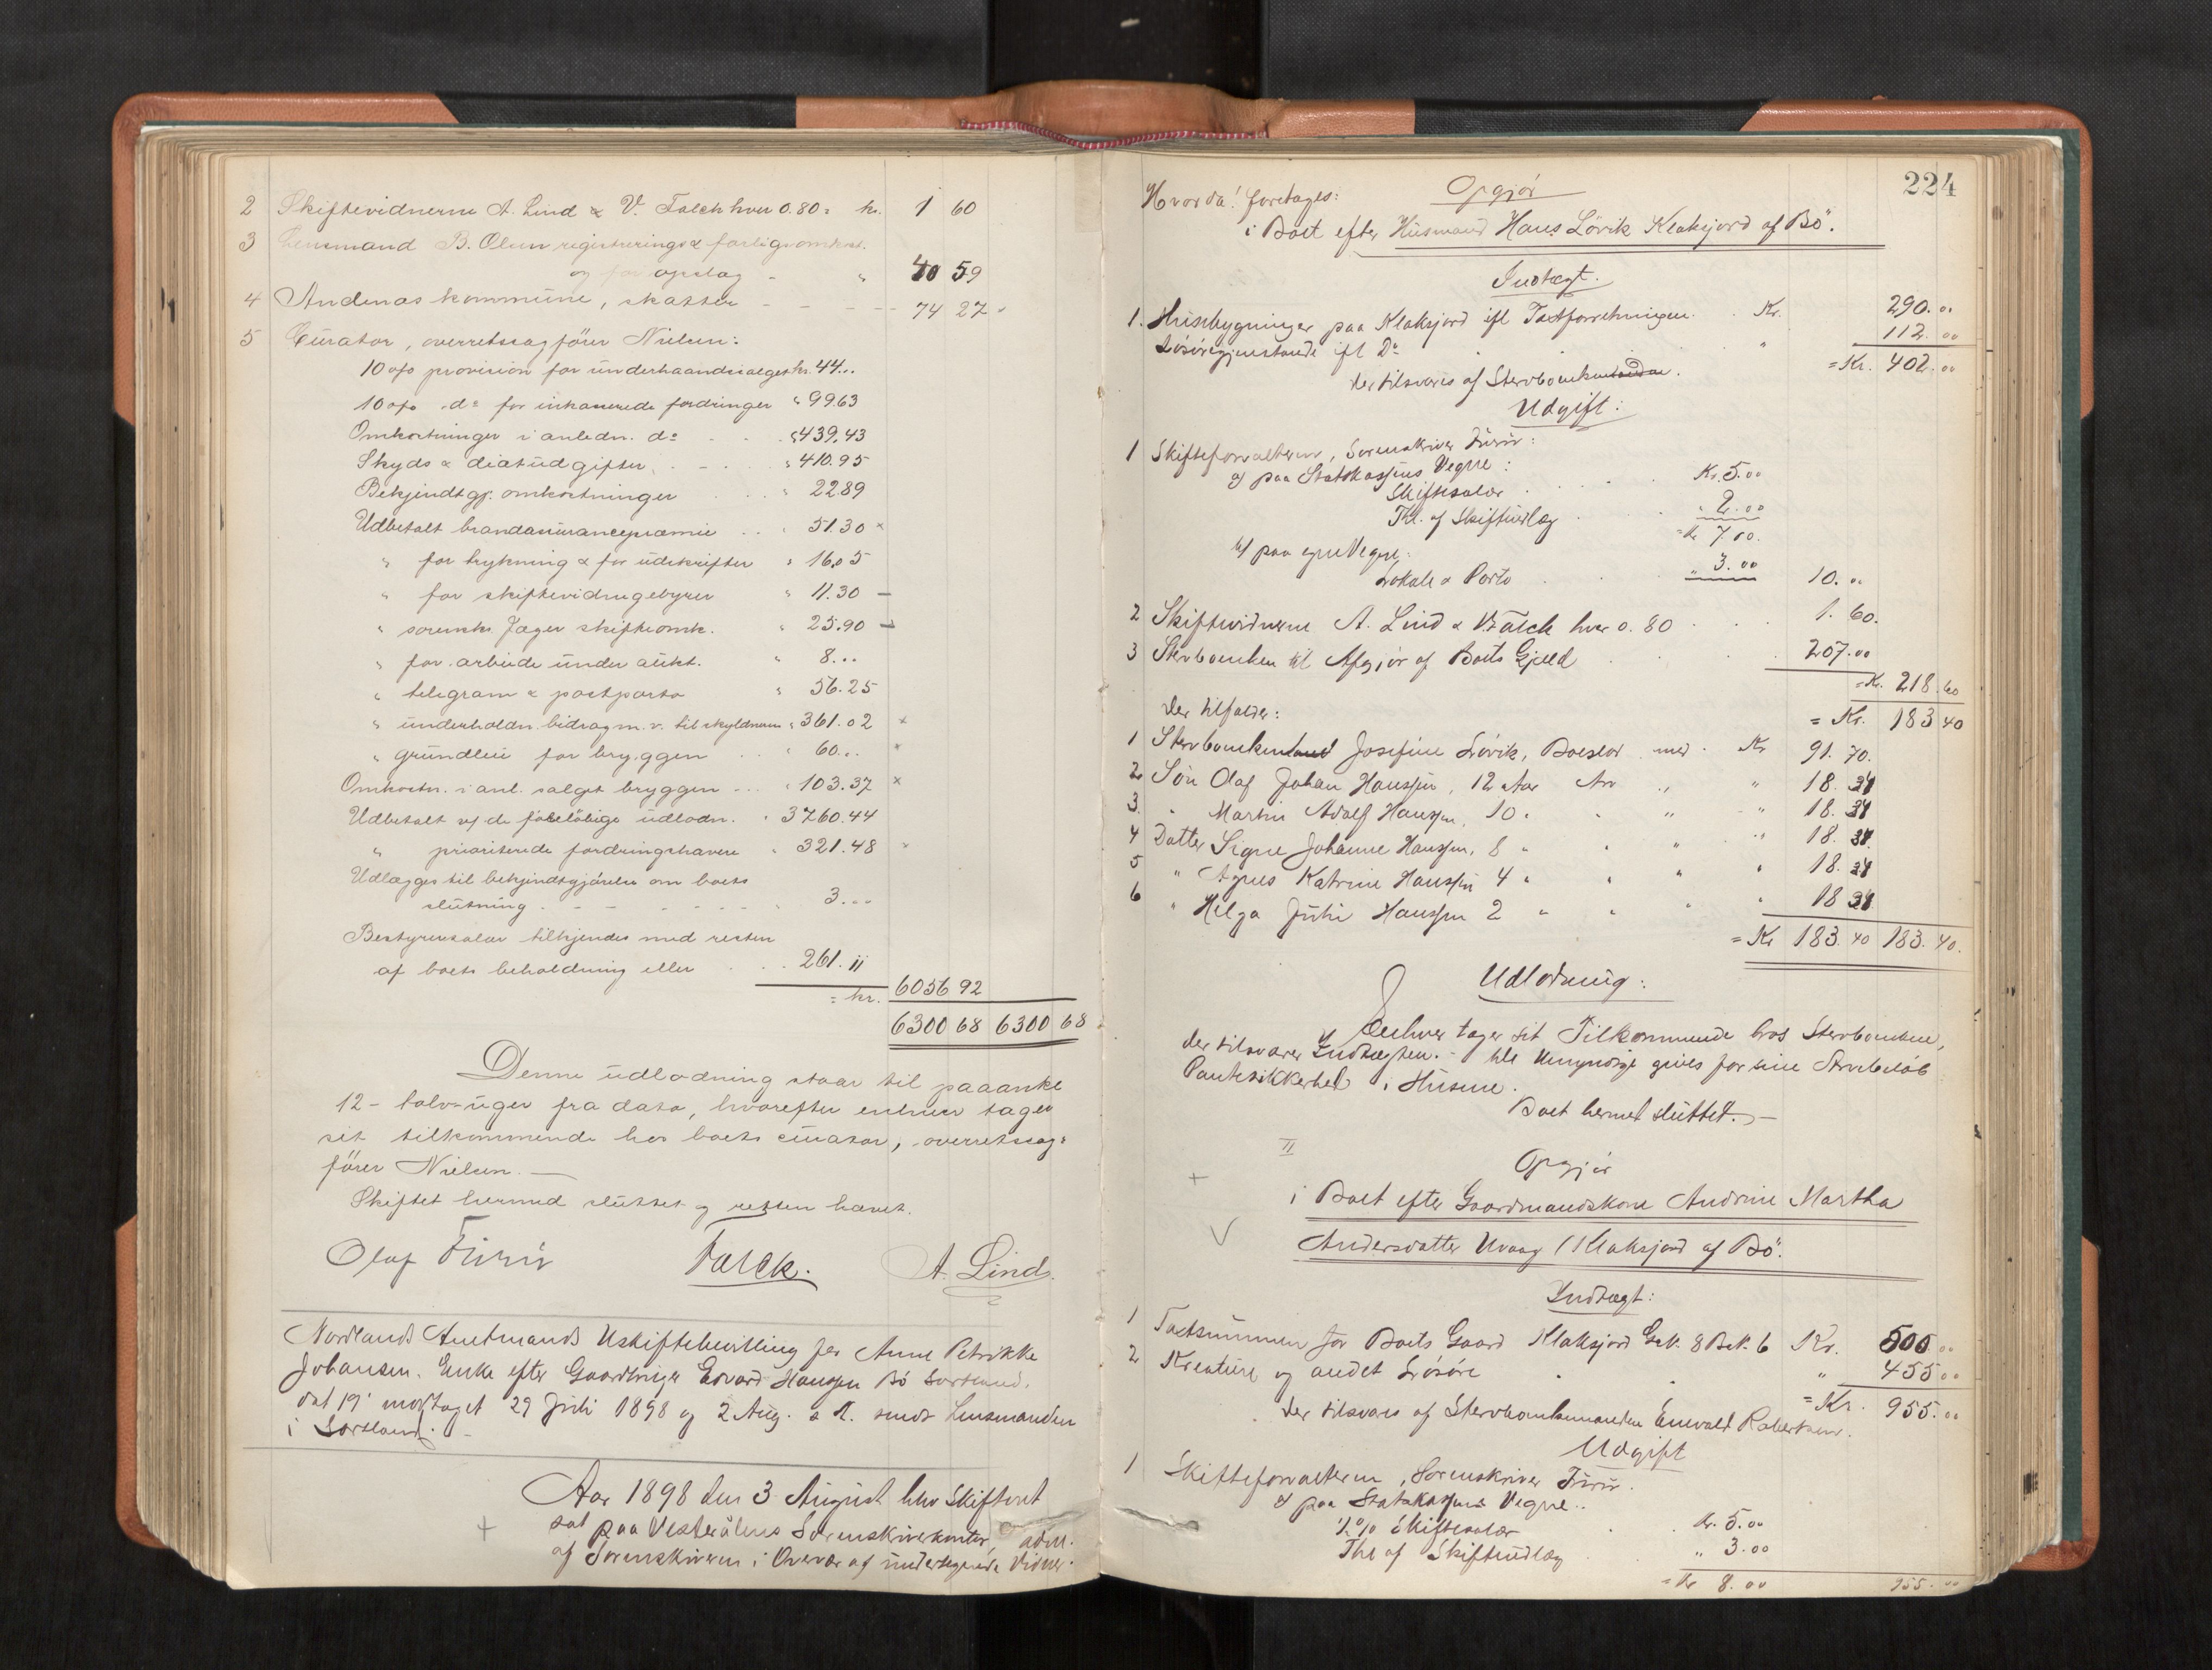 2 Skiftevidnerne A. Lind & V. Falck hver 0.80 = kr. 1 60
3 Lensmand B. Olsen registrerings & forligsomkost.
og for opslag - " 40 59
4 Andenæs kommune, skatter - - - - 74 27
5 Curator, overretssagfører Nielsen:
10 o/o provision for underhaandssalget kr. 44...
10 o/o do for inkasserede fordringer " 99.63
Omkostninger i anledn. do " 439.43
Skyds & diætudgifter " 410.95
Bekjendtgj. omkostninger " 22.89
Udbetalt brandassurancepræmie " 51.30 x
" for trykning & for udskrifter " 16.05
" for skiftevidnegebyrer " 11.30 -
" sorenskr. Jæger skifteomk. " 25.90 -
" for arbeide under aukt. " 8...
" telegram & postporto " 56.25
" underholdn. bidrag m. v. til skyldneren " 361.02 x
" grundleie for bryggen " 60... x
Omkostn. i anl. salget bryggen " 103.37 x
Udbetalt v/ de foreløbige udlodn. " 3760.44
" prioriterede fordringshavere " 321.48
Udlægges til bekjendtgjørelse om boets
slutning - - - - - 3...
Bestyrersalær tilkjendes med resten
af boets beholdning eller 261. 11
= kr. 6056 92
6300 68 6300 68
Denne udlodning staar til paaanke
12 - tolv - uger fra dato, hvorefter enhver tager
sit tilkommende hos boets curator, overretssag=
fører Nielsen. -
Skiftet hermed sluttet og retten hævet.
Olaf Furu Falck. A. Lind.
Nordlands Amtmands Uskiftebevilling for Anne Petrikke
Johansen, Enke efter Gaardbruger Edvard Hanssen Bø Sortland,
dat 19' modtaget 29 Juli 1898 og 2 Aug. s. A. sendt Lensmanden
i Sortland. -
Aar 1898 den 3 August blev Skifteret
sat paa Vesterålens Sorenskriverkontor, adm.
af Sorenskriveren i Overvær af undertegnede Vidner.
224
Hvorda! foretages: Opgjør
i Boet efter Husmand Hans Løvik Klaksjord af Bø.
Indtægt.
1. Husebygninger paa Klaksjord ifl Taxtforretningen Kr. 290.00
Løsøregjenstande ifl Do " 112.00
=Kr. 402.00
der tilsvares af Stervboenken.
Udgift:
1 Skifteforvalteren, Sorenskriver Furu:
a/ paa Statskassens Vegne:
Skiftesalær Kr. 5.00
Thl. af Skifteudlæg " 2.00
=Kr 7.00.
b/ paa egne Vegne:
Lokale & Porto " 3.00 10.00
2 Skiftevidnerne A. Lind & V Falck hver 0.80 1. 60.
3 Stervboenken til Afgjør af Boets Gjæld 207.00
=Kr. 218.60
der tilfalder: = Kr. 183 40
1 Stervboenken Josefine Løvik, Boeslod med Kr 91. 70.
2 Søn Olaf Johan Hanssen, 12 Aar Arv " " 18. 34
3. " Martin Adolf Hanssen, 10 " " " " 18. 34
4 Datter Signe Johanne Hanssen, 8 " " " " 18. 34
5 " Agnes Katrine Hanssen 4 " " " " 18. 34
6 " Helga Julie Hanssen 2 " " " " 18 34
= Kr 183. 40 183. 40.
Udlodning:
Enhver tager sit Tilkommende hos Stervboenken,
der tilsvarer Indtægten. - De Umyndige gives for sine Arvebeløb
Pantesikkerhed i Husene.
Boet hermed sluttet. -
II
Opgjør
+
i Boet efter Gaardmandskone Andrine Martha
Andersdatter Uvaag / Klaksjord af Bø.
Indtægt:
1 Taxtsummen for Boets Gaard Klaksjord G.N. 8 B.N. 6 Kr. 500.00
2 Kreature og andet Løsøre " 455.00
= Kr. 955.00
der tilsvares af Stervboenkemanden Enevald Robertsen.
Udgift
1 Skifteforvalteren, Sorenskriver Furu.
a/ paa Statskassens Vegne:
1/2 % Skiftesalær Kr. 5.00
Thl af Skifteudlæg " 3.00
=Kr 8.00 955.00